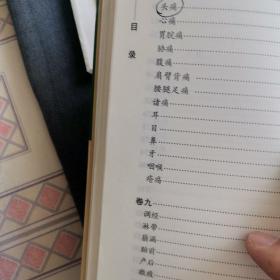 目录
头痛
心痛
胃脘痛
胁痛
腹痛
肩臂背痛
腰腿足痛
诸痛
耳
目
鼻
牙
咽喉
疮疡
卷九
调经
淋带
崩漏
胎前
产后
癥瘕